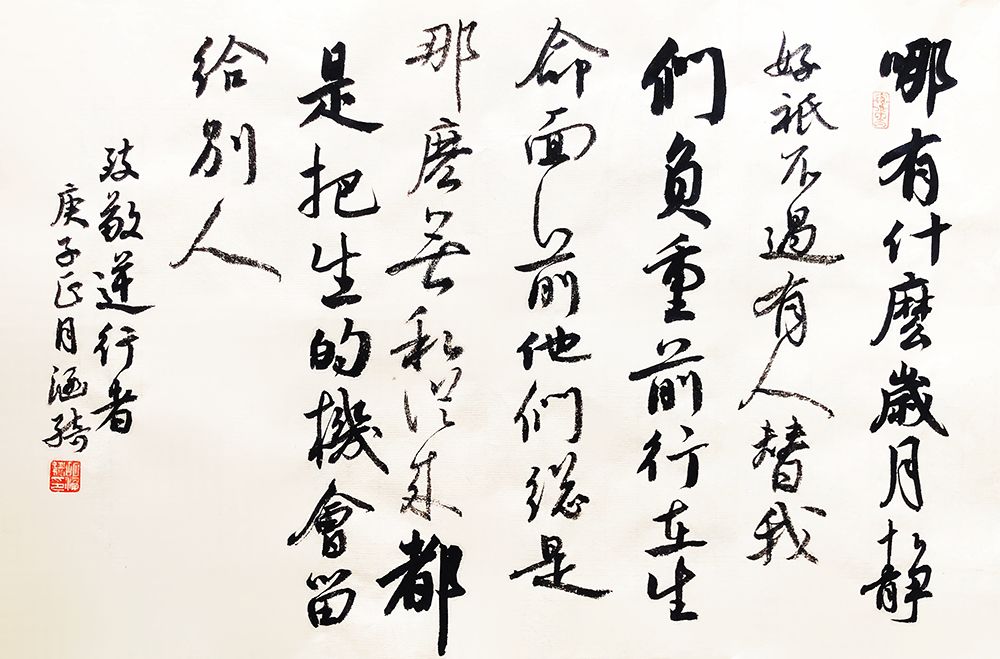 哪有什麼歲月静
好祇不過有人替我
們負重前行在生
命面前他們總是
那麽無私從来都
是把生的機會留
給別人
致敬逆行者
庚子正月涵騎